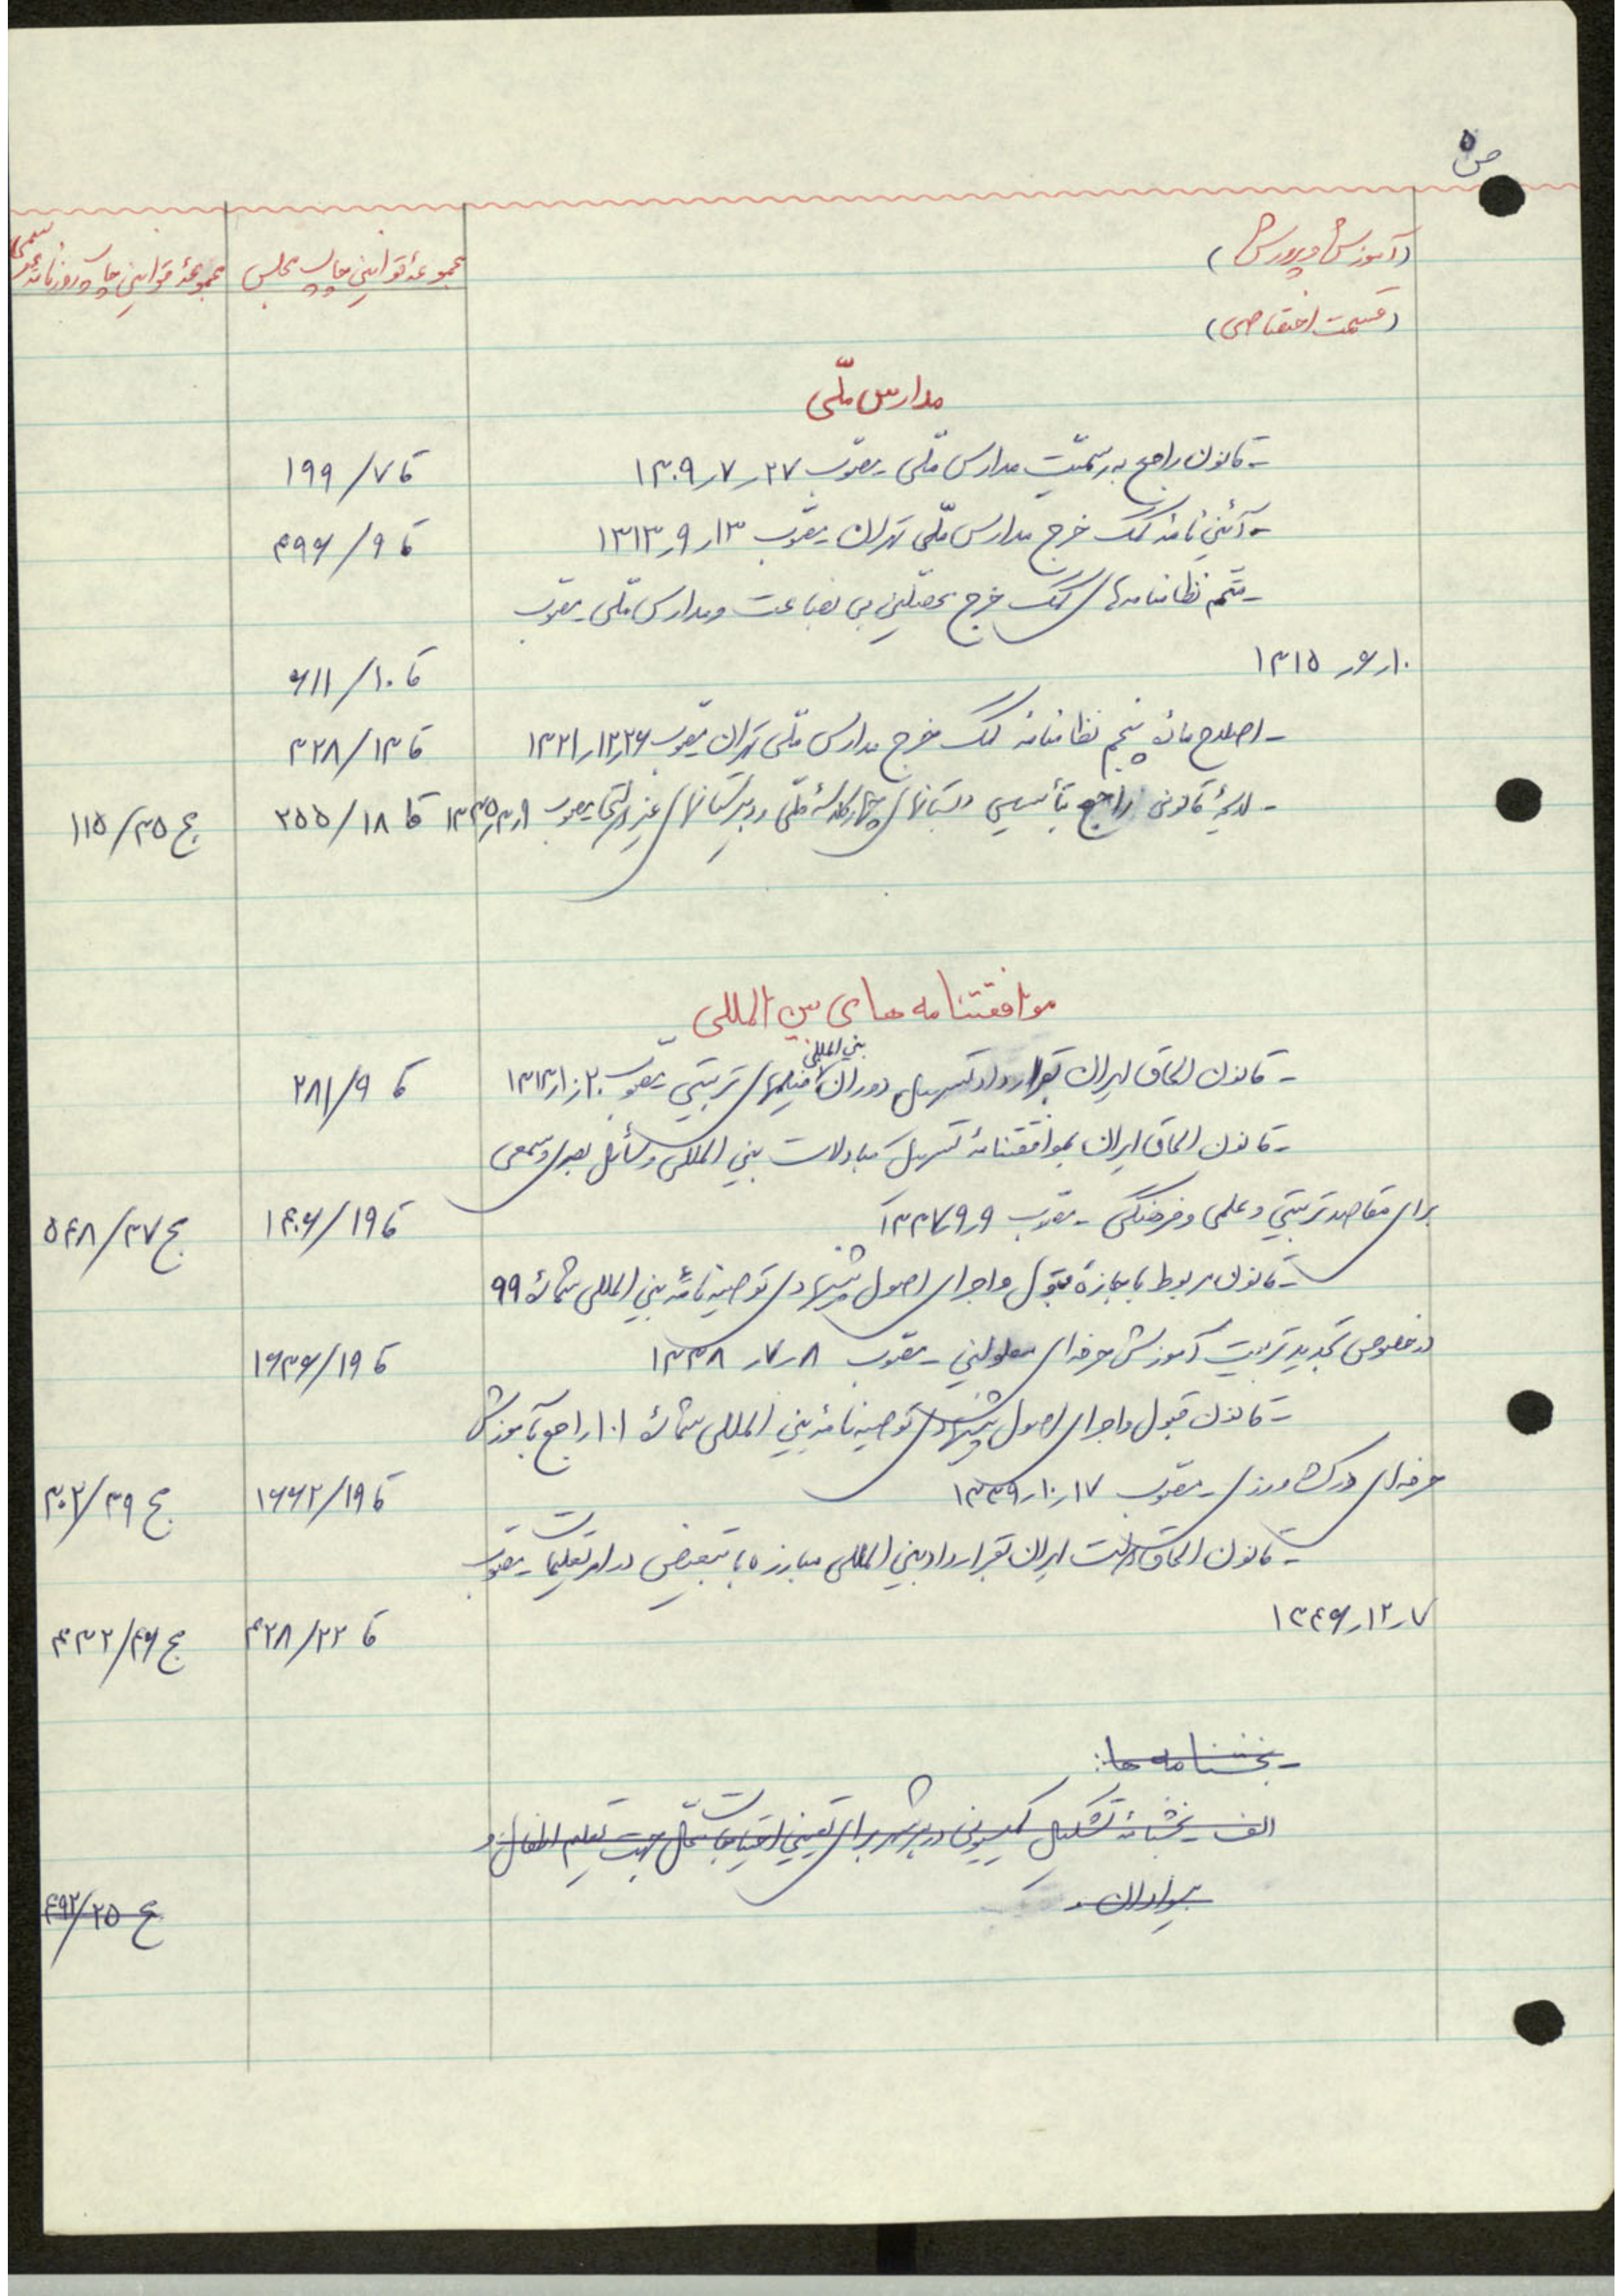 ص ۵
(آموزش و پرورش)
(قسمت اختصاصی)
مجموعهٔ قوانین چاپ مجلس
مجموعهٔ قوانین چاپ روزنامه رسمی
مدارس ملّی
- قانون راجع به رسمیّت مدارس ملّی - مصوّب ۲۷ر۷ر۱۳۰۹ قا ۷/۱۹۹
- آئین نامهٔ کمک خرج مدارس ملّی تهران - مصوّب ۱۳ر۹ر۱۳۱۳ قا ۹/۴۹۶
- متمم نظامنامه‌های کمک خرج محصلین بی بضاعت و مدارس ملّی - مصوّب
۱۰ر۶ر۱۳۱۵ قا ۱۰/۶۱۱
- اصلاح مادهٔ پنجم نظامنامهٔ کمک خرج مدارس ملّی تهران مصوّب ۲۶ر۱۲ر۱۳۲۱ قا ۱۳/۳۲۸
- لایحهٔ قانونی راجع بتأسیس دبستانهای چهار کلاسهٔ ملّی و دبیرستانهای غیر انتفاعی مصوب ۹ر۳ر۱۳۳۵ قا ۱۸/۲۵۵ مج ۳۵/۱۱۵
موافقتنامه های بین المللی
- قانون الحاق ایران بقرارداد تسهیل دوران بین المللی فیلمهای تربیتی - مصوّب ۲۰ر۱۰ر۱۳۱۳ قا ۹/۲۸۱
- قانون الحاق ایران بموافقتنامهٔ تسهیل مبادلات بین المللی وسائل بصری و سمعی
برای مقاصد تربیتی و علمی و فرهنگی - مصوب ۹ر۹ر۱۳۳۷ قا ۱۹/۱۴۰۶ مج ۳۷/۵۴۸
- قانون مربوط باجازهٔ قبول و اجرای اصول پیشنهادی توصیه نامهٔ بین المللی شمارهٔ ۹۹
در خصوص تجدید تربیت آموزش حرفه‌ای معلولین - مصوّب ۸ر۷ر۱۳۳۸ قا ۱۹/۱۶۳۶
- قانون قبول و اجرای اصول پیشنهادی توصیه نامهٔ بین المللی شمارهٔ ۱۰۱ راجع بآموزش
حرفه‌ای در کشاورزی - مصوّب ۱۷ر۱۰ر۱۳۳۹ قا ۱۹/۱۶۶۲ مج ۳۹/۳۰۲
- قانون الحاق دولت ایران بقرارداد بین المللی مبارزه با تبعیض در امر تعلیمات - مصوّب
۷ر۱۲ر۱۳۴۶ قا ۲۲/۴۲۸ مج ۴۶/۴۳۲
- بخشنامه ها:
الف - بخشنامهٔ تشکیل کمیسیونی در هر شهر برای تعیین احتیاجات محلّی جهت تعلیم اطفال و
بیسوادان. مج ۲۵/۴۹۲